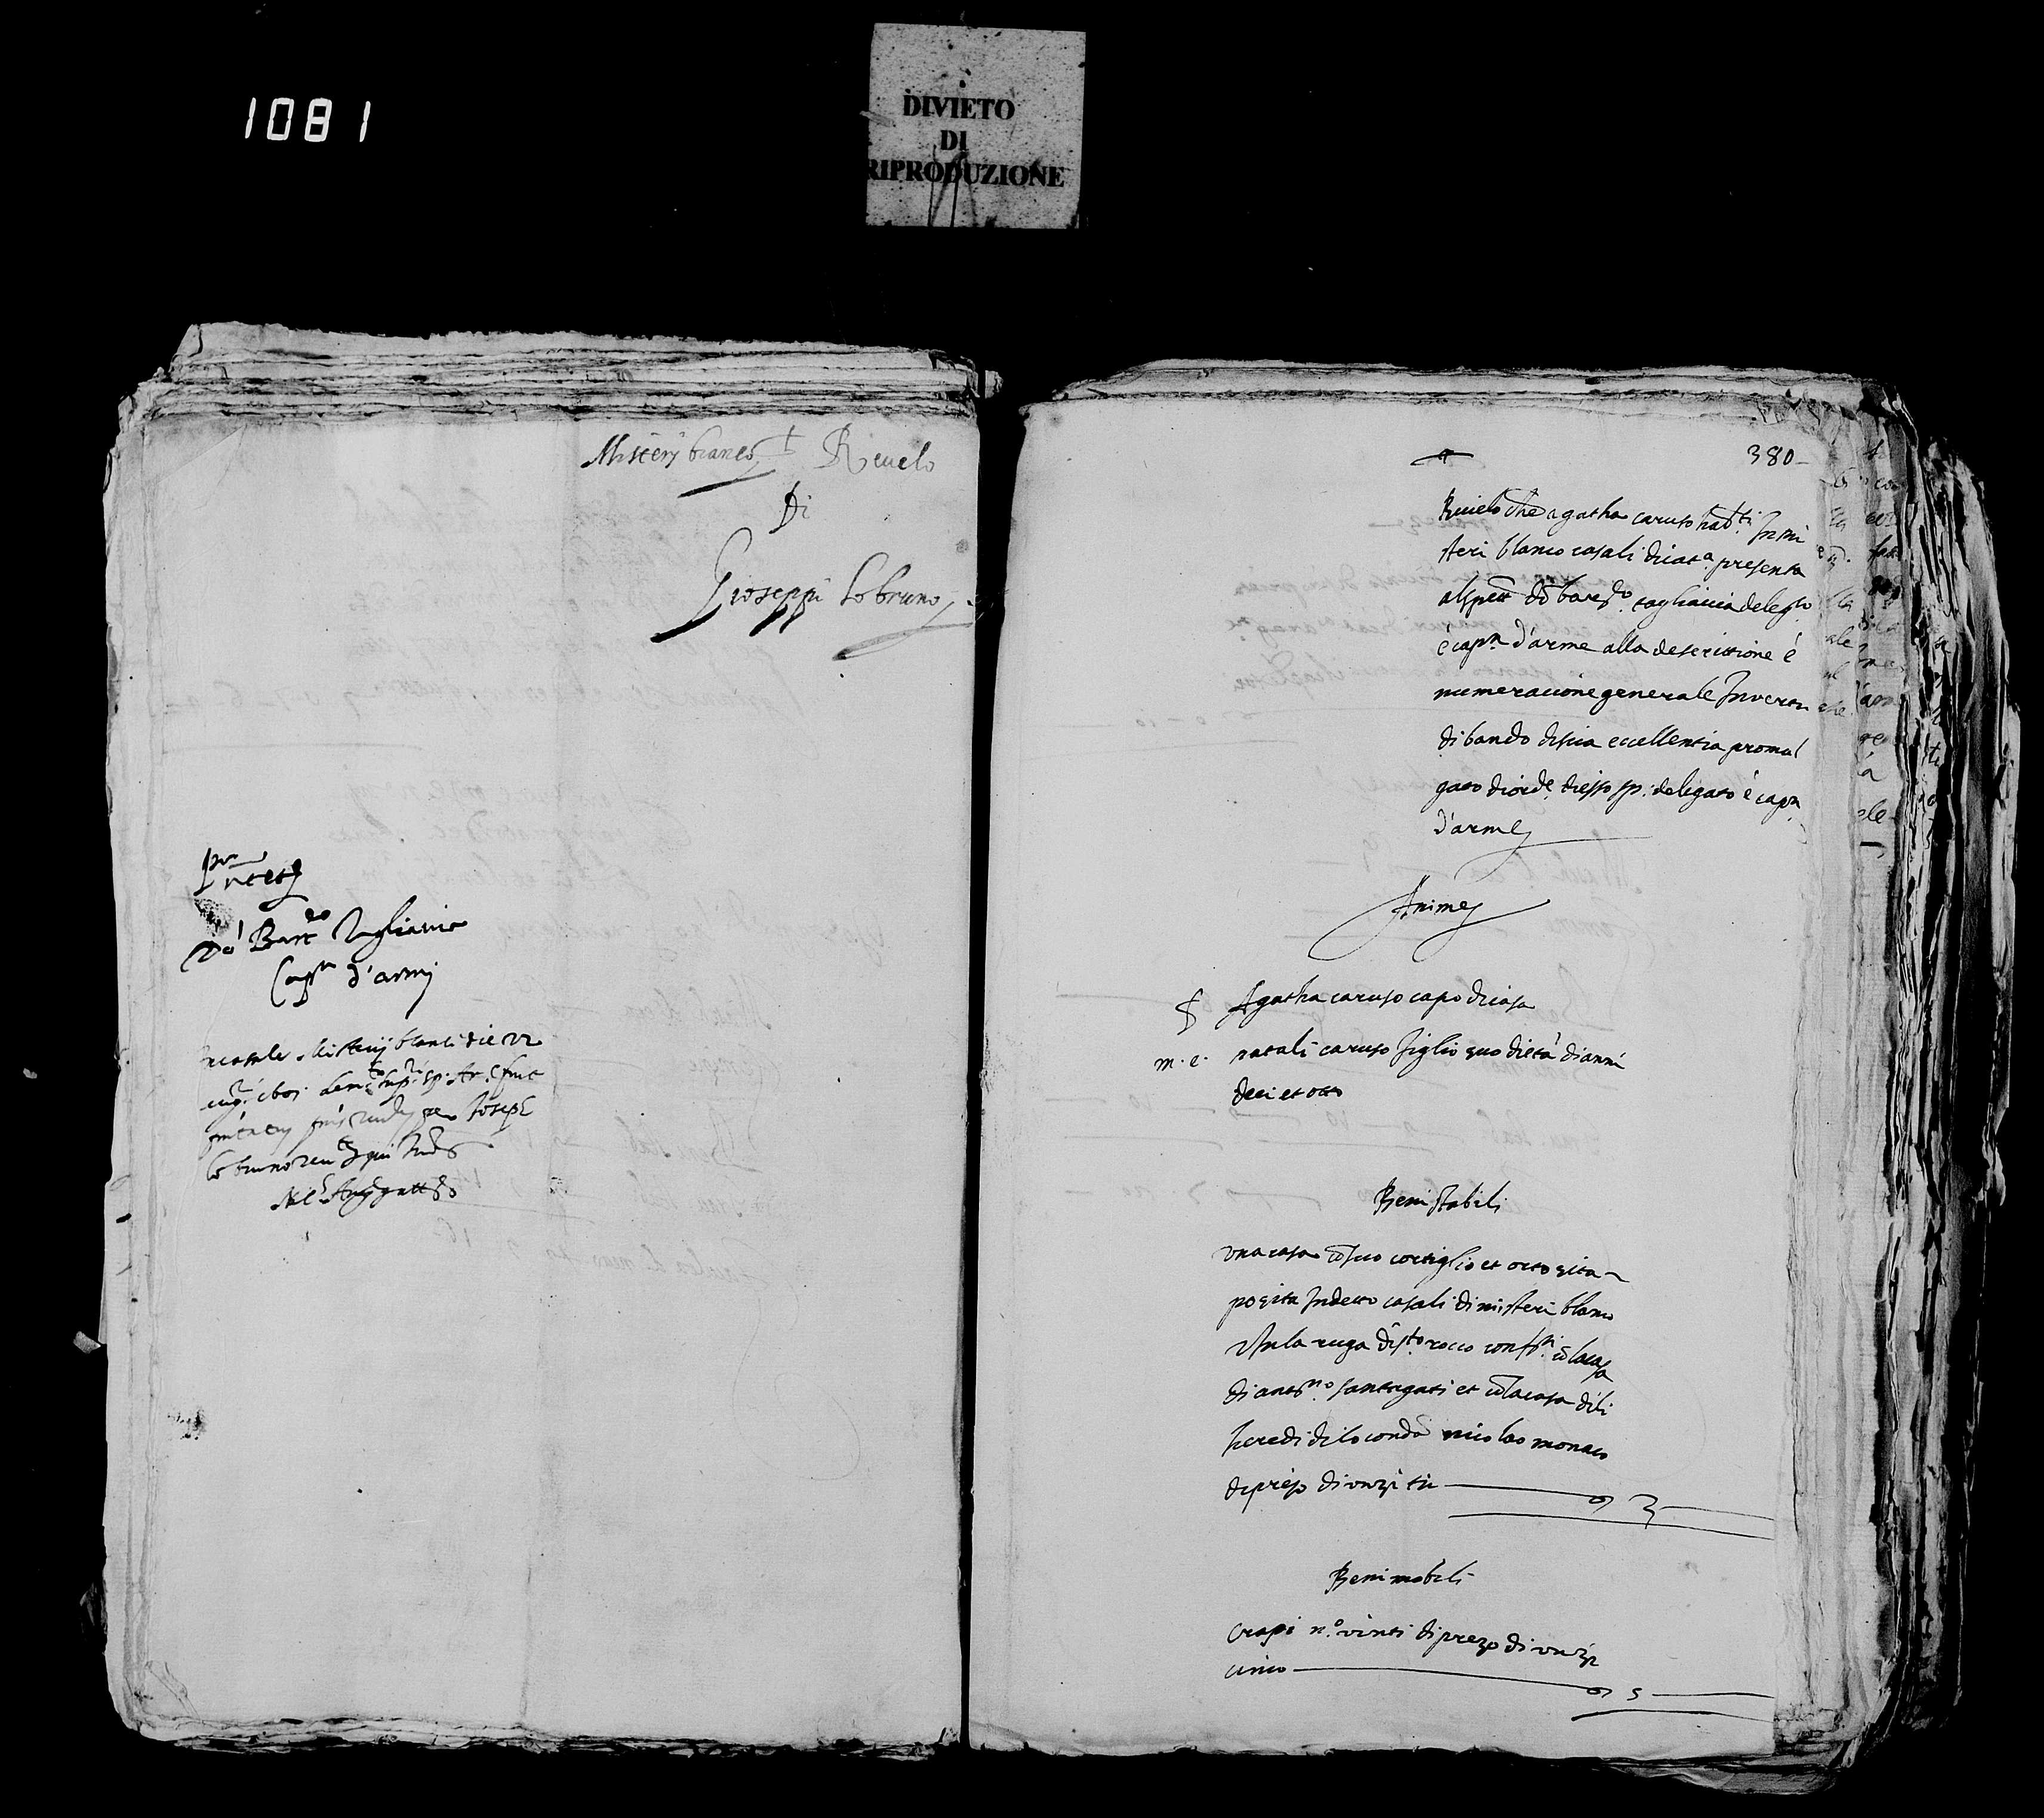 1081
DIVIETO
DI
RIPRODUZIONE
Misterij bianco Revelo
Di
Gioseppi Lobruno
Do' Bart.eo Tagliavia
Cap.n d'armi
casale Misterij blanci die 22
per Joseph
lo bruno
380
Rivielo che agatha caruso hab.ti In mi
steri blanco casali di cat.a presenta
al spett. do bart.o tagliavia delegto
è cap.n d'arme alla descrittione è
numeracione generale In vertu
di bando di sua eccellentia promul
gato di ord.e di esso sp. delegato è cap.n
d'arme
Anime
Agatha caruso capo di casa
m. e. natali caruso figlio suo di età di anni
deci et otto
Beni stabili
una casa co suo cortiglio et orto sita
posita In detto casali di misteri blanco
In la ruga di s.to rocco conf.ti co la casa
di ant.no santagati et co la casa di li
heredi di lo condam nicolao monaco
di preso di unzi tri 3
Beni mobili
crapi n.o vinti di prezo di unzi
cinco 5